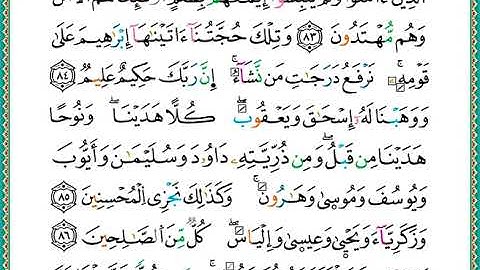 وَهُم مُّهْتَدُونَ ٨٣ وَتِلْكَ حُجَّتُنَآ ءَاتَيْنَٰهَآ إِبْرَٰهِيمَ عَلَىٰ
قَوْمِهِۦ نَرْفَعُ دَرَجَٰتِ مَن نَّشَآءُ إِنَّ رَبَّكَ حَكِيمٌ عَلِيمٌ ٨٤
وَوَهَبْنَا لَهُۥٓ إِسْحَٰقَ وَيَعْقُوبَ كُلًّا هَدَيْنَا وَنُوحًا
هَدَيْنَا مِن قَبْلُ وَمِن ذُرِّيَّتِهِۦ دَاوُۥدَ وَسُلَيْمَٰنَ وَأَيُّوبَ
وَيُوسُفَ وَمُوسَىٰ وَهَٰرُونَ وَكَذَٰلِكَ نَجْزِى الْمُحْسِنِينَ ٨٥
وَزَكَرِيَّآءَ وَيَحْيَىٰ وَعِيسَىٰ وَإِلْيَاسَ كُلٌّ مِّنَ الصَّٰلِحِينَ ٨٦